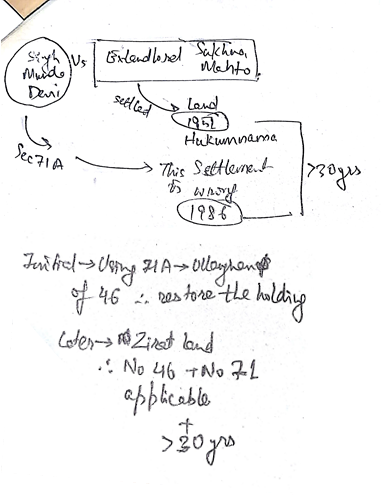 Singh
Munda
Devi
Vs
Exlandlord Sukhna
Mahto
settled
Land
1952
Hukumnama
Sec 71A
This Settlement
is wrong
1986
>30yrs
Initial → Using 71A →
of 46 ∴ restore the holding
Later → Zirat land
∴ No 46 + No 71
applicable
+
>30 yrs